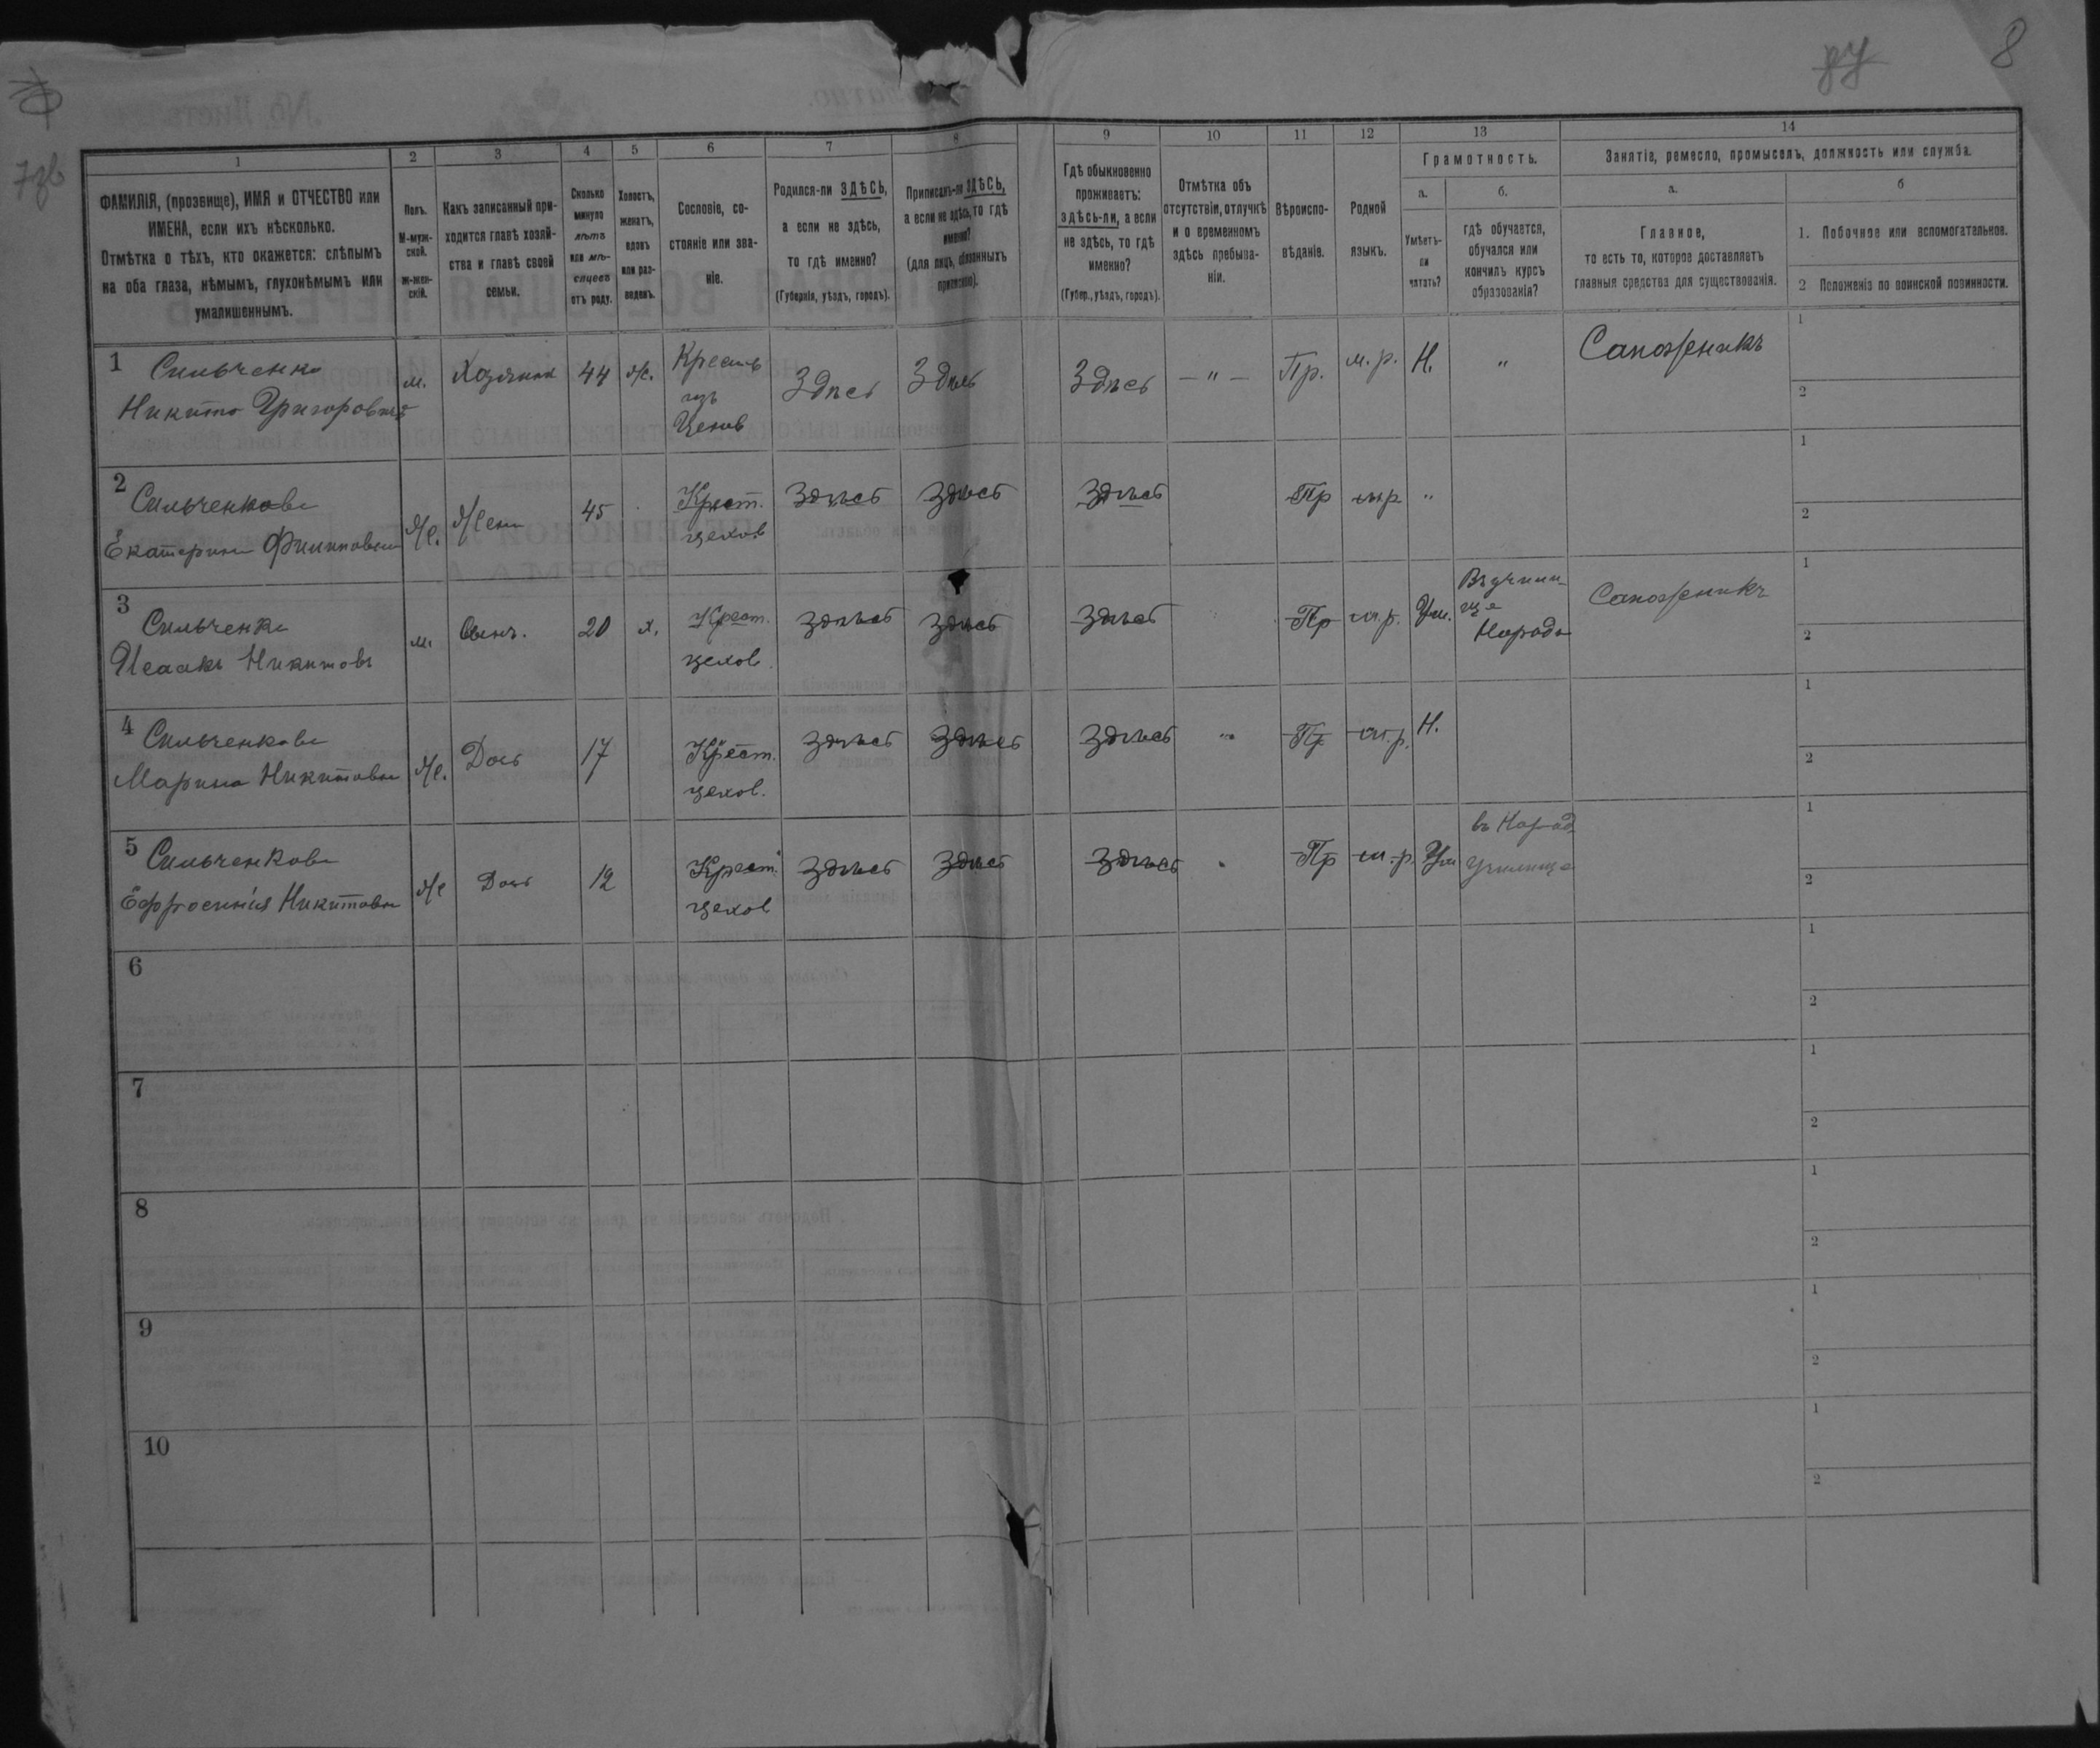 8
1
2
3
4
5
6
7
8
9
10
11
12
13
14
ФАМИЛІЯ, (прозвище), ИМЯ и ОТЧЕСТВО или
ИМЕНА, если ихъ нѣсколько.
Отмѣтка о тѣхъ, кто окажется: слѣпымъ
на оба глаза, нѣмымъ, глухонѣмымъ или
умалишеннымъ.
Полъ.
М-муж-
ской.
Ж-жен-
скій.
Какъ записанный при-
ходится главѣ хозяй-
ства и главѣ своей
семьи.
Сколько
минуло
лѣтъ
или мѣ-
сяцевъ
отъ роду.
Холостъ,
женатъ,
вдовъ
или раз-
веденъ.
Сословіе, со-
стояніе или зва-
ніе.
Родился-ли ЗДѢСЬ,
а если не здѣсь,
то гдѣ именно?
(Губернія, уѣздъ, городъ).
Приписанъ-ли ЗДѢСЬ,
а если не здѣсь, то гдѣ
именно?
(для лицъ, обязанныхъ
припискою).
Гдѣ обыкновенно
проживаетъ:
здѣсь-ли, а если
не здѣсь, то гдѣ
именно?
(Губер., уѣздъ, городъ).
Отмѣтка объ
отсутствіи, отлучкѣ
и о временномъ
здѣсь пребыва-
ніи.
Вѣроиспо-
вѣданіе.
Родной
языкъ.
Грамотность.
а.
Умѣетъ-
ли
читать?
б.
гдѣ обучается,
обучался или
кончилъ курсъ
образованія?
Занятіе, ремесло, промыселъ, должность или служба.
а.
Главное,
то есть то, которое доставляетъ
главныя средства для существованія.
б
1. Побочное или вспомогательное.
2 Положеніе по воинской повинности.
1 Сильченко м. Хозяинъ 44 Ж. Крест Здѣсь Здѣсь Здѣсь — " — Пр. м. р. Н. " Сапожникъ 1
Никита Григоровичъ
2
2 Сильченкова Ж. Жена 45 Крест. Здѣсь Здѣсь Здѣсь Пр м.р " 1
Екатерина Филиповна цехов
2
3 Сильченко м. Сынъ. 20 х. Крест. Здѣсь Здѣсь Здѣсь Пр м.р. Ум. Въ учили- Сапожникъ 1
Исаакъ Никитовъ цехов. ще
Народн
2
4 Сильченкова Ж. Дочь 17 Крест. Здѣсь Здѣсь Здѣсь " Пр м.р. Н. 1
Марина Никитовна цехов.
2
5 Сильченкова Ж Дочь 12 Крест. Здѣсь Здѣсь Здѣсь Пр м.р Ум въ Народ 1
Ефросинія Никитовна цехов Училище
2
6
1
2
7
1
2
8
1
2
9
1
2
10
1
2